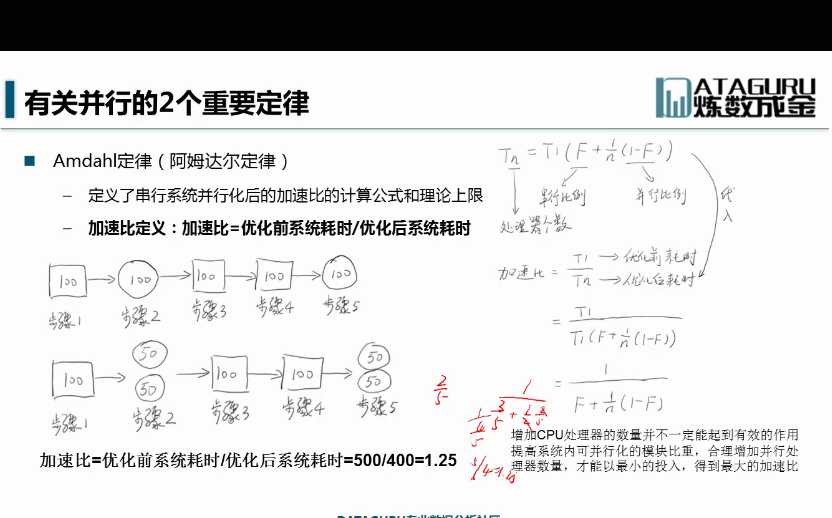 有关并行的2个重要定律
DATAGURU
炼数成金
■ Amdahl定律（阿姆达尔定律）
– 定义了串行系统并行化后的加速比的计算公式和理论上限
– 加速比定义：加速比=优化前系统耗时/优化后系统耗时
Tn = T1(F + 1/n(1-F))
串行比例 并行比例
处理器个数
代入
加速比 = T1/Tn
T1 → 优化前耗时
Tn → 优化后耗时
= T1 / T1(F+1/n(1-F))
= 1 / F+1/n(1-F)
100 → 100 → 100 → 100 → 100
步骤1 步骤2 步骤3 步骤4 步骤5
50 50
100 → → 100 → 100 →
50 50
步骤1 步骤2 步骤3 步骤4 步骤5
2/5
加速比=优化前系统耗时/优化后系统耗时=500/400=1.25
增加CPU处理器的数量并不一定能起到有效的作用
提高系统内可并行化的模块比重，合理增加并行处
理器数量，才能以最小的投入，得到最大的加速比